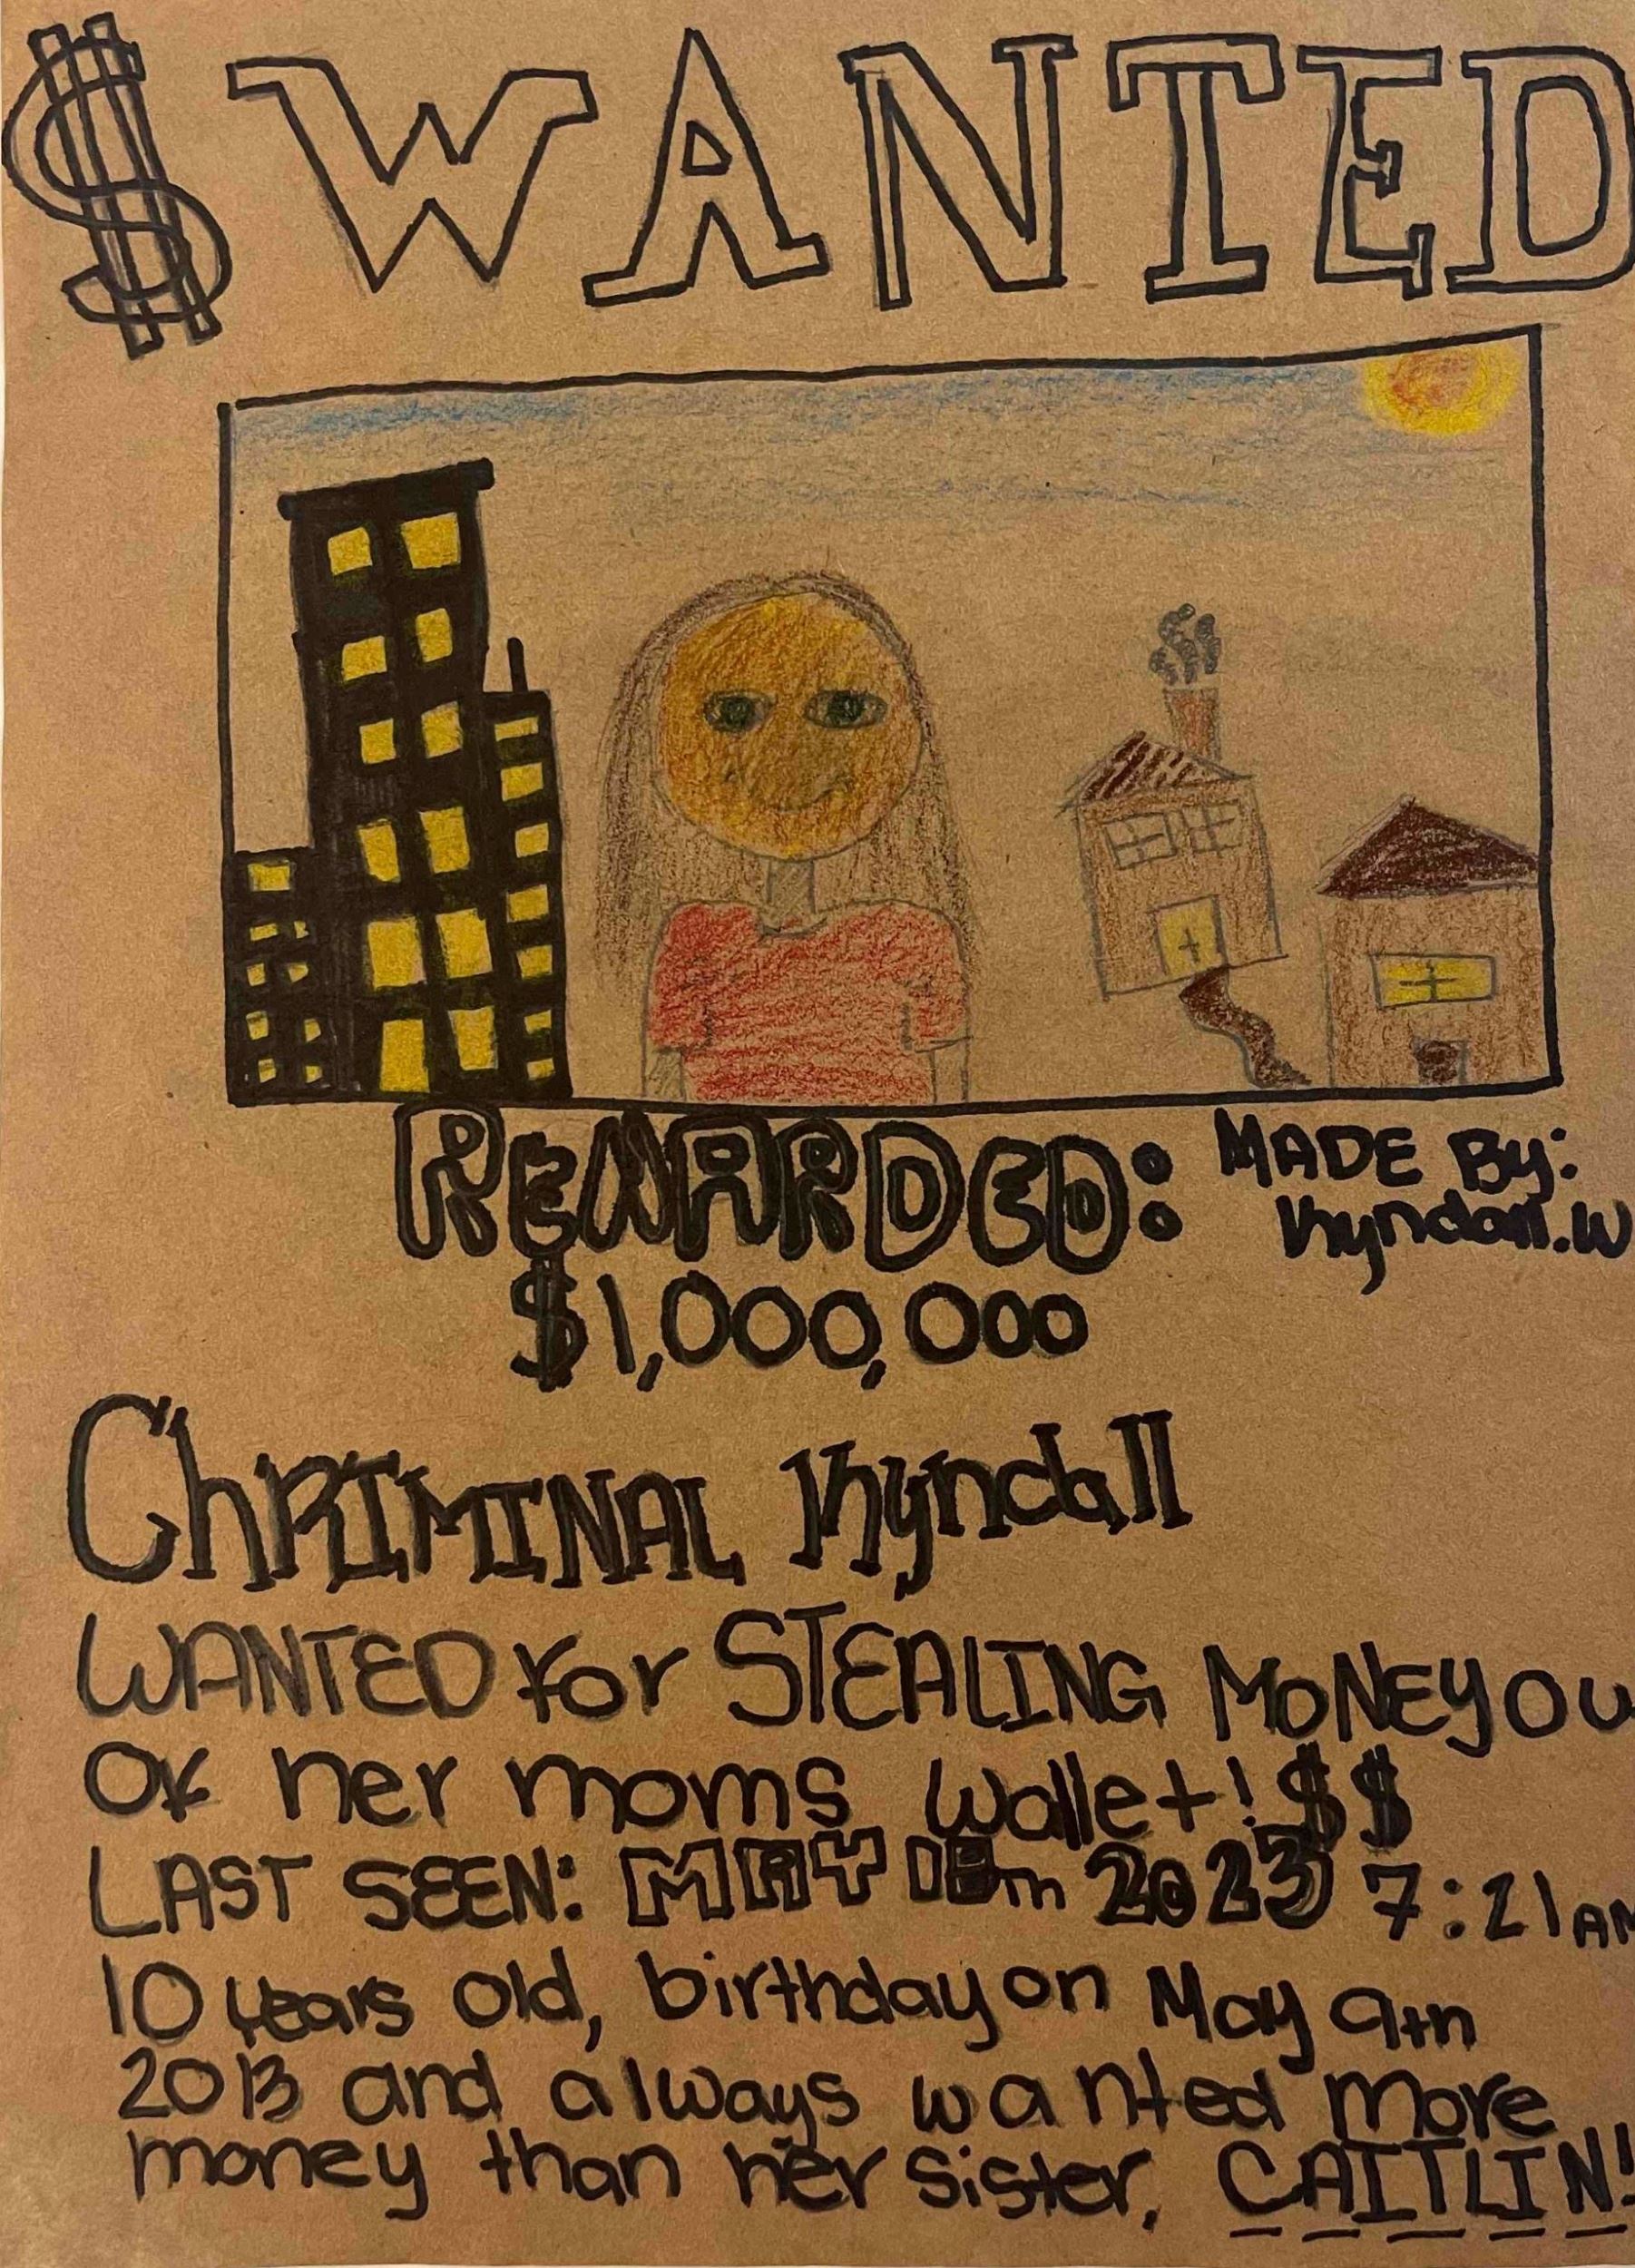 $ WANTED
REWARDED:
MADE By:
Khyndall.W
$1,000,000
ChRIMINAL Khyndall
WANTED for STEALING MONEY OU
OF her moms wallet! $$
LAST SEEN: MAY 2023 7:21AM
10 years old, birthday on May 9th
2013 and always wanted more
money than her sister, CAITLIN!